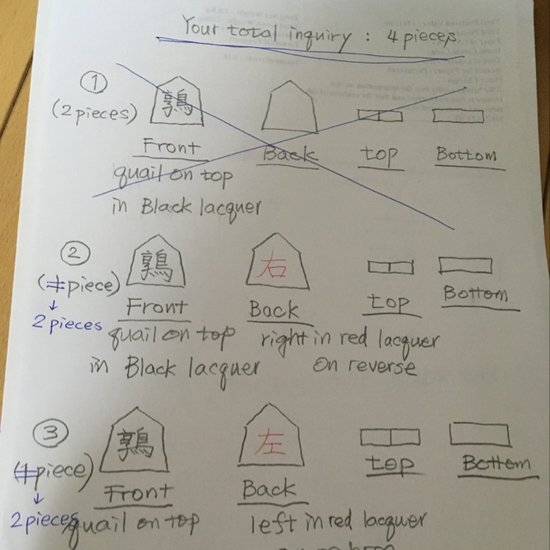 Your total inquiry : 4 pieces
①
(2 pieces)
鶉
Front
Back
top
Bottom
quail on top
in Black lacquer
②
(1 piece)
2 pieces
鶉
右
Front
Back
top
Bottom
quail on top
right in red lacquer
in Black lacquer
on reverse
③
(1 piece)
2 pieces
鶉
左
Front
Back
top
Bottom
quail on top
left in red lacquer